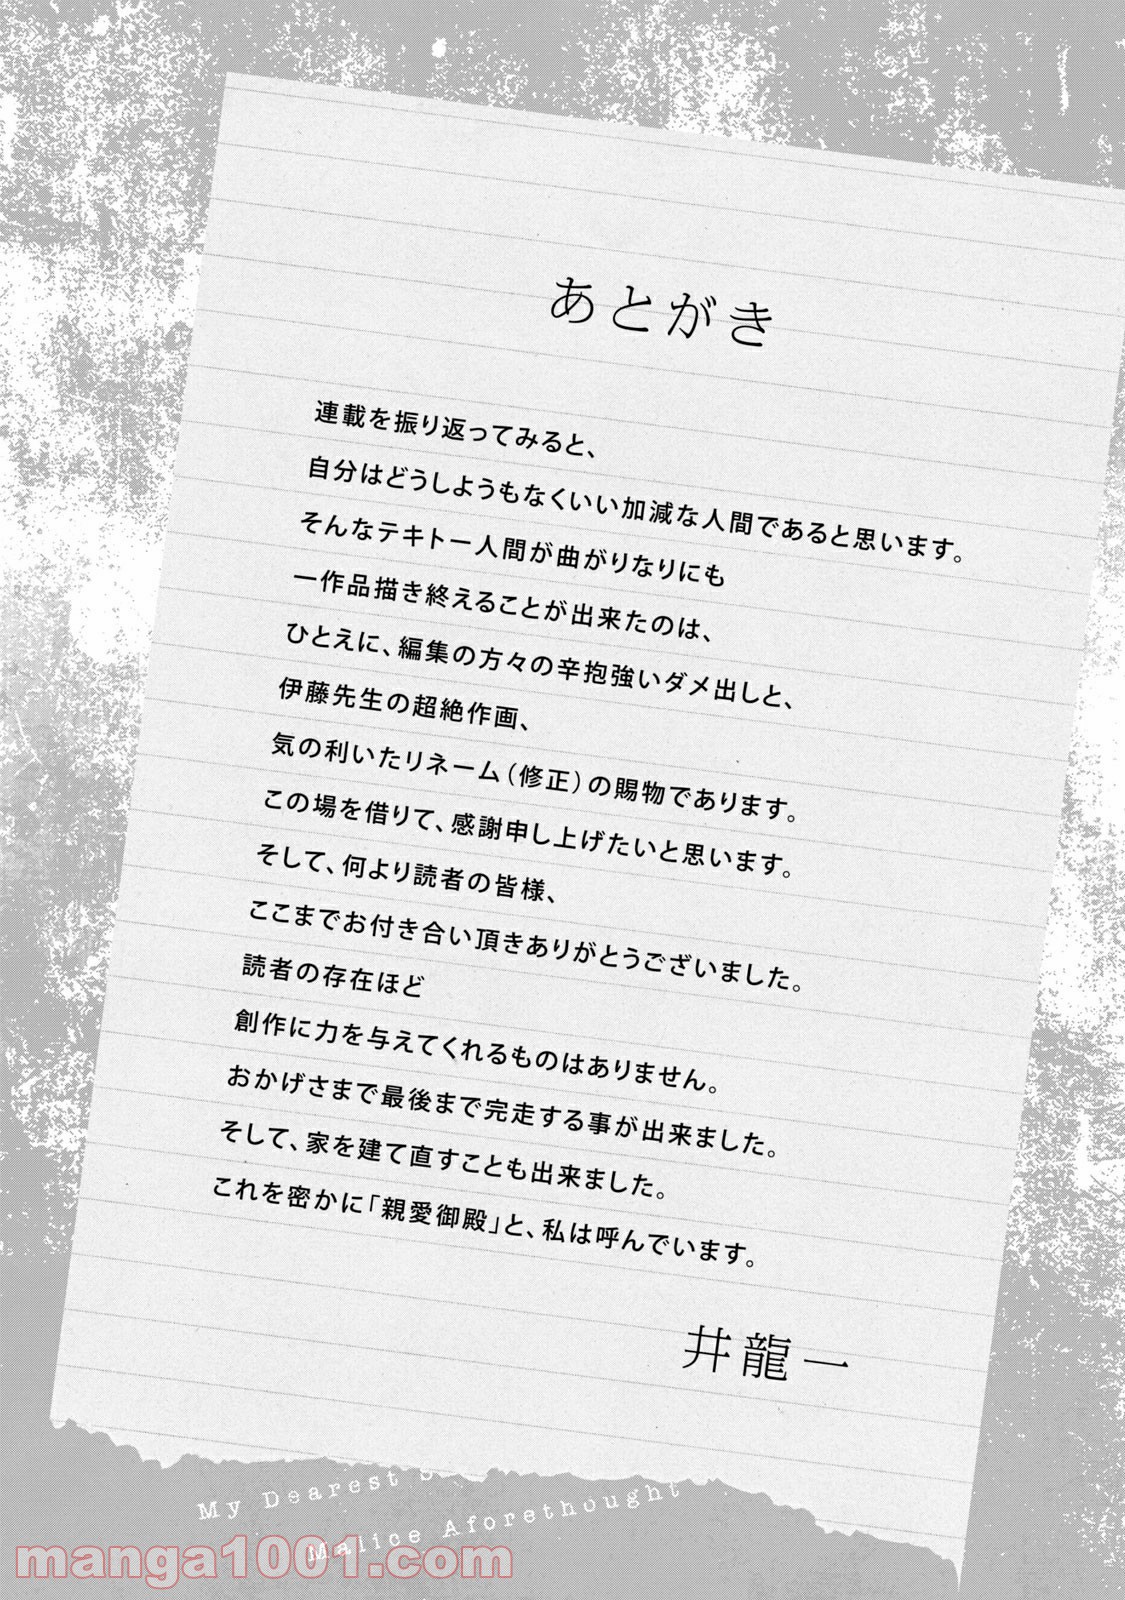 あとがき
連載を振り返ってみると、
自分はどうしようもなくいい加減な人間であると思います。
そんなテキトー人間が曲がりなりにも
一作品描き終えることが出来たのは、
ひとえに、編集の方々の辛抱強いダメ出しと、
伊藤先生の超絶作画、
気の利いたリネーム(修正)の賜物であります。
この場を借りて、感謝申し上げたいと思います。
そして、何より読者の皆様、
ここまでお付き合い頂きありがとうございました。
読者の存在ほど
創作に力を与えてくれるものはありません。
おかげさまで最後まで完走する事が出来ました。
そして、家を建て直すことも出来ました。
これを密かに「親愛御殿」と、私は呼んでいます。
井龍一
My Dearest
Malice Aforethought
manga1001.com